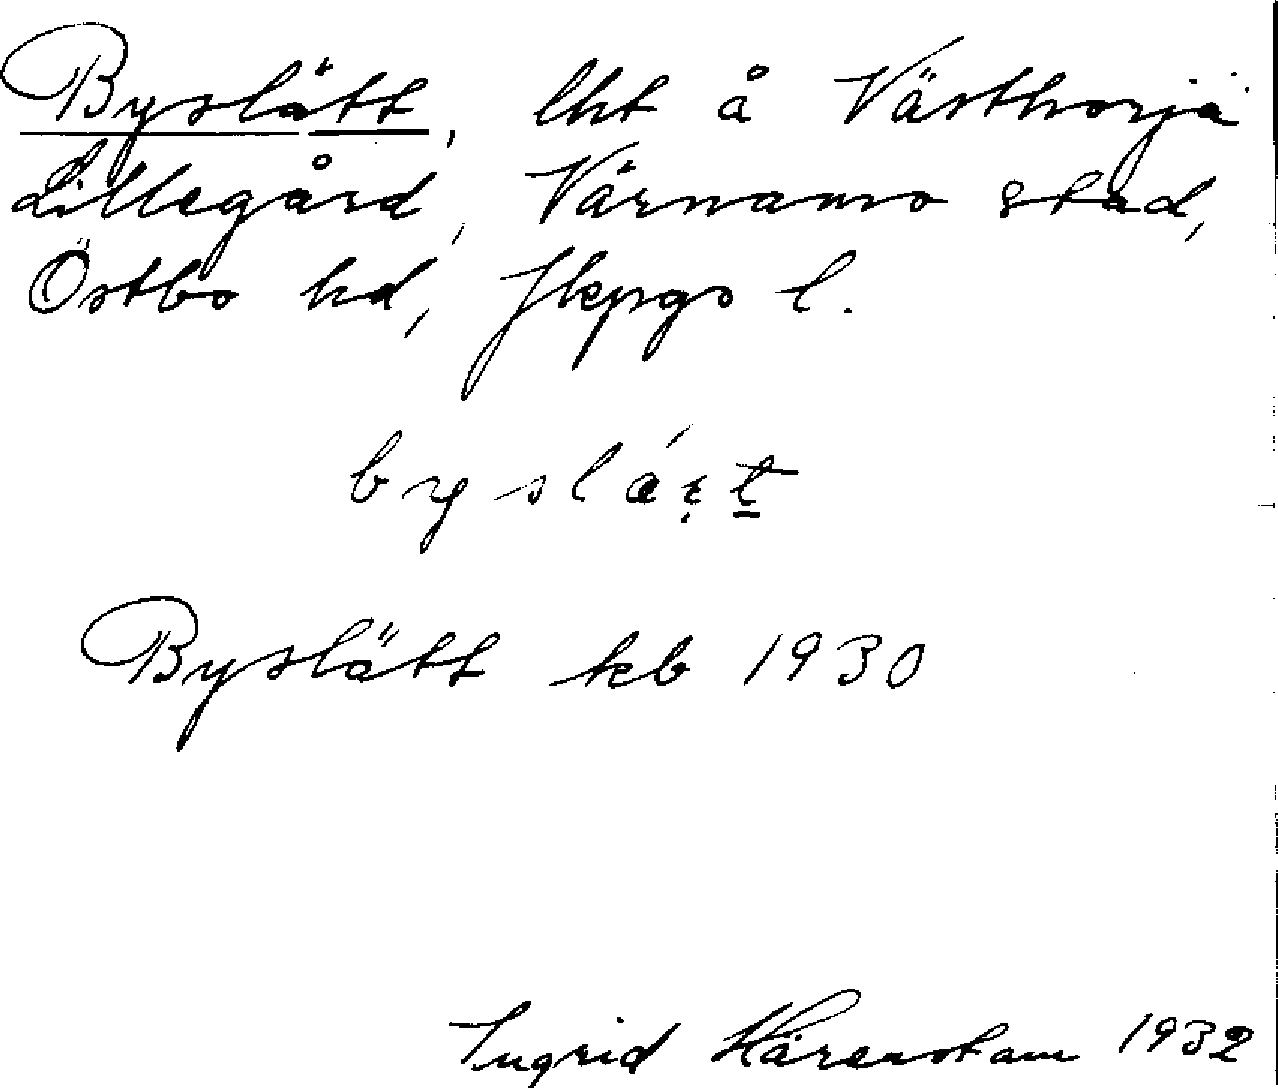 Byslätt, lht å Västhorja
Lillegård, Värnamo stad,
Östbo hd, Jkpgs l.
byslätt
Byslätt kb 1930
Ingrid Härenstam 1932